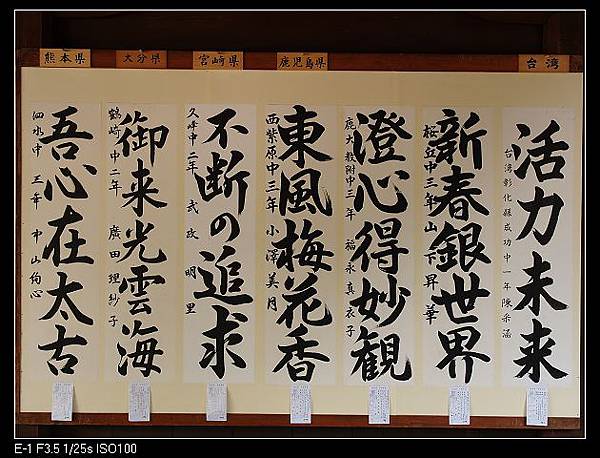 台湾
活力未来
台湾彰化縣成功中一年 陳采涵
新春銀世界
桜丘中三年 山下昇華
鹿児島県
澄心得妙観
鹿大教附中三年 福永真衣子
東風梅花香
西紫原中三年 小澤美月
宮崎県
不断の追求
久峰中二年 式政明里
大分県
御来光雲海
鶴崎中二年 廣田理紗子
熊本県
吾心在太古
泗水中 三年 中山絢心
E-1 F3.5 1/25s ISO100